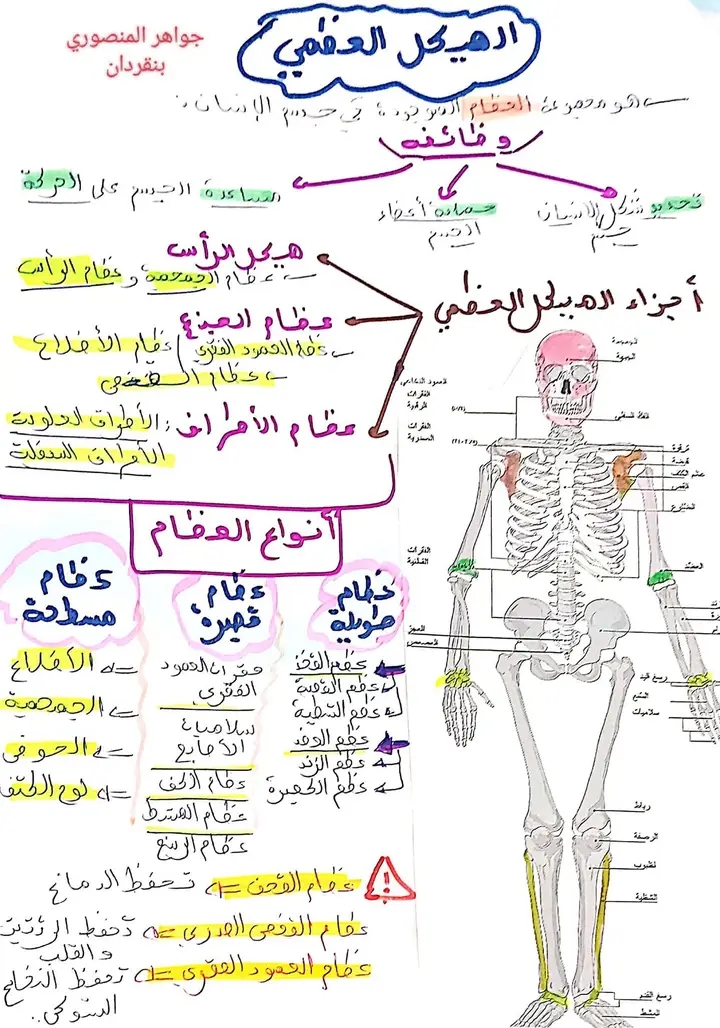 جواهر المنصوري
بنقردان
الهيكل العظمي
هو مجموعة العظام الموجودة في جسم الإنسان
وظائفه
تحديد شكل الإنسان
جسم
حماية أعضاء
الجسم
مساعدة الجسم على الحركة
أجزاء الهيكل العظمي
هيكل الرأس
عظام الجمجمة و عظام الرأس
عظام الجذع
عظام العمود الفقري / عظام الأضلاع
عظام
عظام الأطراف: الأطراف العلوية
الأطراف السفلية
أنواع العظام
عظام
طويلة
عظم الفخذ
عظم القصبة
عظم الشظية
عظم العضد
عظم الزند
عظم الكعبرة
عظام
قصيرة
فقرات العمود
الفقري
سلاميات
الأصابع
عظام الكف
عظام المشط
عظام الرسغ
عظام
مسطحة
الأضلاع
الجمجمة
الحوض
لوح الكتف
عظام القحف = تحفظ الدماغ
عظام القفص الصدري = تحفظ الرئتين
و القلب
عظام العمود الفقري = تحفظ النخاع
الشوكي..
الجمجمة
الفك السفلي
الفقرات
الرقبية
الفقرات
الصدرية
ترقوة
العضد
الفقرات
القطنية
العجز
العصعص
رسغ اليد
سلاميات
رباط
الرضفة
ظنبوب
الشظية
رسغ القدم
المشط